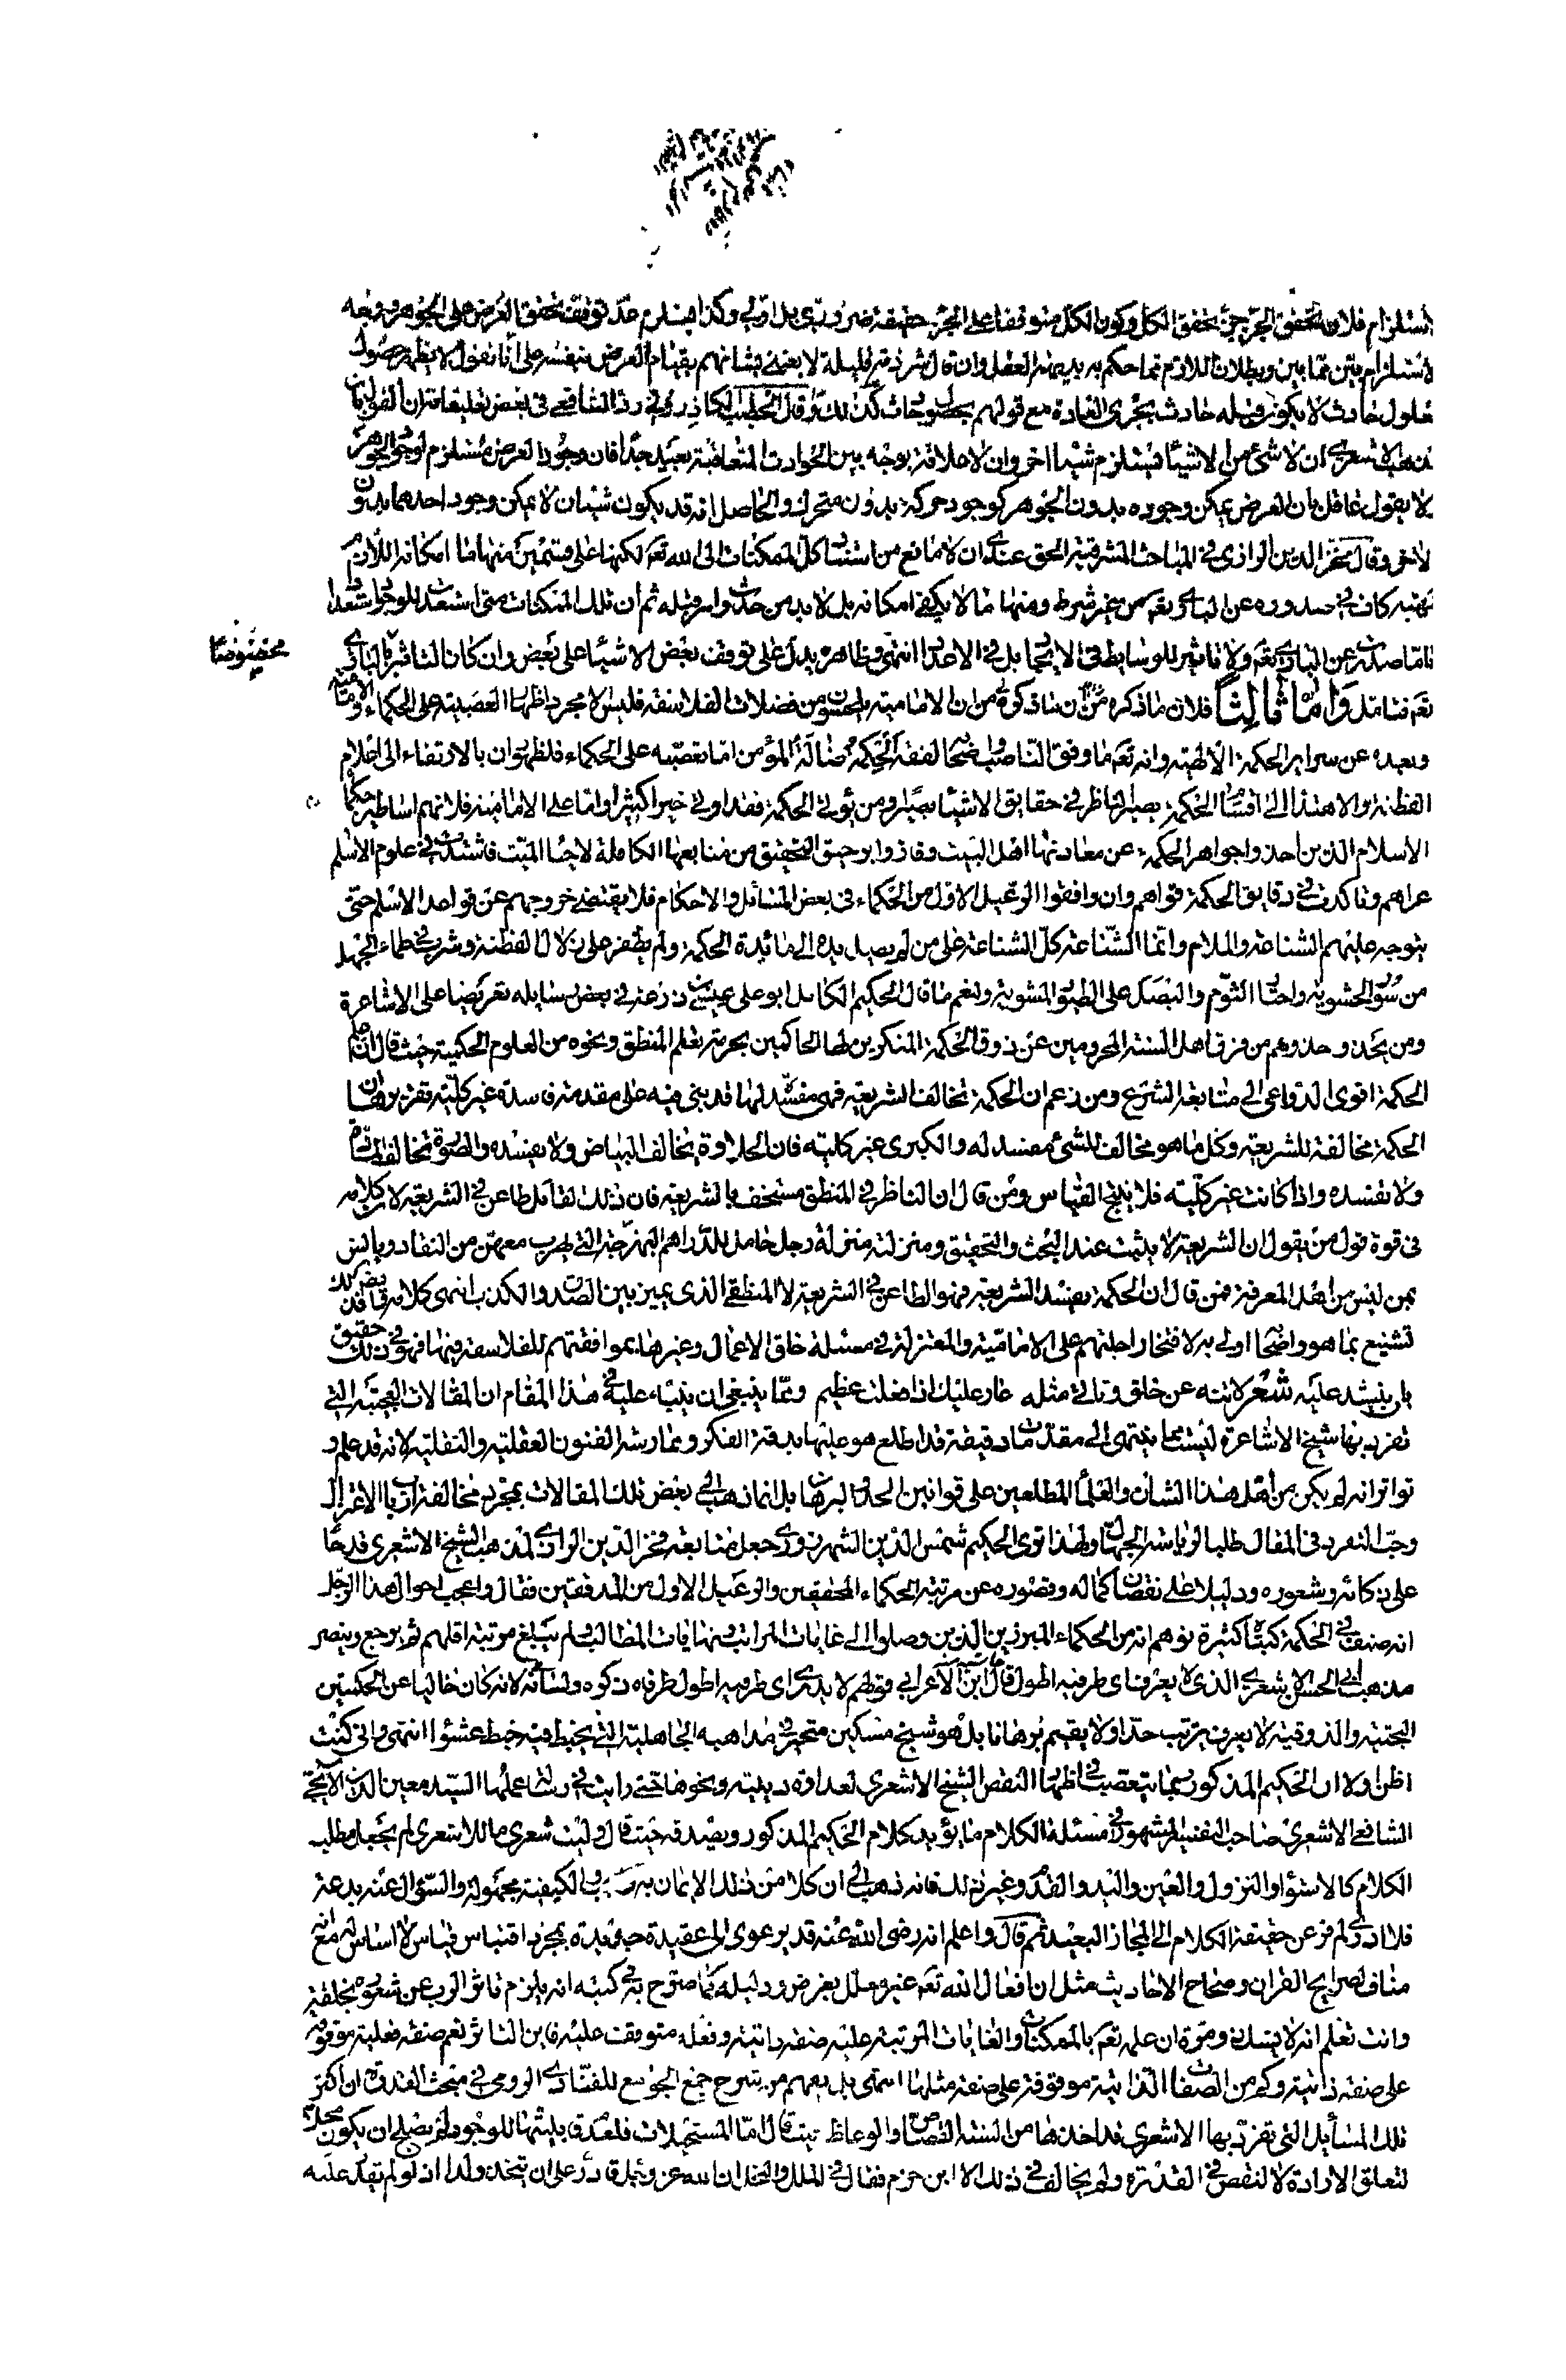 استلزام فلان تحقق الجزء حين تحقق الكل وكون الكل متوقفا على الجزء حقيقة ضرورتي بل اولى وكذا استلزام عدم توقف تحقق العرض على الجوهر وجه
لاستلزام متين مما بين وبطلان اللازم مما حكم به بديهة العقل وان قال شرذمة قليلة لا يعتنى بشانهم بقيام العرض بنفسه على انا نقول لا يظهر حصول
معلول حادث لا يكون قبله حادث بجرى العادة مع قولهم كذلك وقال الخطيب الكاذروني الشافعي في بعض تعليقاته ان القول بما
ذهب الاشعري ان لا شئ من الاشياء يستلزم شيئا اخر وان لا علاقة بوجه بين الحوادث المتعاقبة بعيد جدا فان وجود العرض مستلزم لوجود الجوهر
لا يقول عاقل بان العرض يمكن وجوده بدون الجوهر كوجود حركة بدون متحرك والحاصل انه قد يكون شيئان لا يمكن وجود احدهما بدون
الاخر وقال فخر الدين الرازي في المباحث المشرقية الحق عندي ان لا مانع من استناد كل الممكنات الى الله تعم لكنها على قسمين منها ما امكانه اللازم
لمهيته كاف في صدوره عن الباري تعم من غير شرط ومنها ما لا يكفي امكانه بل لا بد من حدوث امر قبله ثم ان تلك الممكنات متى استعدت للوجود استعدادا
تاما صدرت عن الباري تعم ولا تاثير للوسايط في الايجاد بل في الاعداد انتهى وظاهره يدل على توقف بعض الاشياء على بعض وان كان التاثير للباري
مخصوصا
تعم فتامل واما ثالثا فلان ما ذكره من ان ما ذكره من ان الامامية يلحسون من فضلات الفلاسفة فليس الا مجرد اظهار العصبية على الحكماء والامامية
وبعده عن سراير الحكمة الالهية وانه تعم ما وفق الناصب واصحابه لفقه الحكمة ضالة المؤمن اما تعصبه على الحكماء فلظهور ان بالارتقاء الى اعلام
الفطنة والاهتداء الى اقسام الحكمة يصير الناظر في حقايق الاشياء بصيرا ومن يؤتى الحكمة فقد اوتي خيرا كثيرا واما على الامامية فلانهم اساطين حكماء
الاسلام الذين اخذوا جواهر الحكمة عن معادنها اهل البيت وفازوا برحيق التحقيق من منابعها الكاملة لاحياء الميت فاشتدت في علوم الاسلام
عراهم وتاكدت في دقايق الحكمة قواهم وان وافقوا الرعيل الاول من الحكماء في بعض المسائل والاحكام فلا يقتضي خروجهم عن قواعد الاسلام حتى
يتوجه عليهم الشناعة والملام وانما الشناعة كل الشناعة على من لم يصل يده الى مائدة الحكمة ولم يظفر على زلال الفطنة وشرب حماء الجهل
من سؤر الحشوية واختار الثوم والبصل على الطيور المشوية ولنعم ما قال الحكيم الكامل ابو علي عيسى بن زرعة في بعض رسايله تعريضا على الاشاعرة
ومن يحذو حذوهم من فرق اهل السنة المحرومين عن ذوق الحكمة المنكرين لها الحاكمين بحرمة تعلم المنطق ونحوه من العلوم الحكمية حيث قال ان علم
الحكمة اقوى الدواعي الى متابعة الشرع ومن زعم ان الحكمة تخالف الشريعة فهي مفسدة لها قد بنى فيه على مقدمة فاسدة غير كلية تقريرها ان
الحكمة مخالفة للشريعة وكل ما هو مخالف للشئ مفسد له والكبرى غير كلية فان الحلاوة تخالف البياض ولا يفسده والصورة تخالف المادة
ولا تفسده واذا كانت غير كلية فلا ينتج القياس ومن قال ان الناظر في المنطق مستخف بالشريعة فان ذلك القائل طاعن في الشريعة لان كلامه
في قوة قول من يقول ان الشريعة لا يثبت عند البحث والتحقيق ومنزلته منزلة رجل حامل للدراهم البهرجة التي يهرب معهن من النقاد ويانس
بمن ليس من اهل المعرفة فمن قال ان الحكمة يفسد الشريعة فهو الطاعن في الشريعة لا المنطقي الذي يميز بين الصدق والكذب انتهى كلامه
تشنيع بما هو واصحابه اولى به لافتخار اجلتهم على الامامية والمعتزلة في مسئلة خلق الاعمال وغيرها بموافقتهم للفلاسفة فيها فهو في ذلك حقيق
بان ينشد عليه شعر لا تنه عن خلق وتاتي مثله عار عليك اذا فعلت عظيم ومما ينبغي ان ينبه عليه في هذا المقام ان المقالات العجيبة التي
تفرد بها شيخ الاشاعرة ليست مما ينتهي الى مقدمات دقيقة قد اطلع هو عليها بدقة الفكر وممارسة الفنون العقلية والنقلية لانه قد علم
تواترا انه لم يكن من اهل هذا الشان والعلماء المطلعين على قوانين الحد والبرهان بل انما ذهب الى بعض تلك المقالات بمجرد مخالفة ارباب الاعتزال
وحب التفرد في المقال طلبا لرياسة الجهال ولهذا ترى الحكيم شمس الدين الشهرزوري جعل متابعة فخر الدين الرازي لمذهب الشيخ الاشعري قدحا
على ذكائه وشعوره ودليلا على نقصان كماله وقصوره عن مرتبة الحكماء المحققين والرعيل الاول من المدققين فقال واعجب احوال هذا الرجل
انه صنف في الحكمة كتبا كثيرة توهم انه من الحكماء المبرزين الذين وصلوا الى غايات المراتب ونهايات المطالب ولم يبلغ مرتبة اقلهم ثم يرجع وينصر
مذهب ابي الحسن الاشعري الذي لا يعرف اى طرفيه اطول قال ابن الاعرابي قولهم لا يدرى اى طرفيه اطول طرفاه ذكره ولسانه لانه كان خاليا عن الحكمتين
البحثية والذوقية لا يعرف يرتب حدا ولا يقيم برهانا بل هو شيخ مسكين متحير في مذاهبه الجاهلية التي يخبط فيه خبط عشوا انتهى واني كنت
اظن اولا ان الحكيم المذكور ربما يتعصب في اظهار النقص للشيخ الاشعري لعداوة دينية ونحوها حتى رايت في رسالة عملها السيد معين الدين الايجي
الشافعي الاشعري صاحب التفسير المشهور في مسئلة الكلام ما يؤيد كلام الحكيم المذكور ويصدقه حيث قال وليت شعري ما للاشعري لم يجعل مطلب
الكلام كالاستواء والنزول والعين واليد والقدم وغير ذلك فانه ذهب الى ان كلا من ذلك الايمان به والكيفية مجهولة والسؤال عنه بدعة
فلا ادري لم فر عن حقيقة الكلام الى المجاز البعيد ثم قال واعلم انه رضي الله عنه قد يرعوي الى عقيدة جديدة بمجرد اقتباس قياس لا اساس له مع انه
مناف لصرايح القران وصحاح الاحاديث مثل ان افعال الله تعم غير معلل بغرض ودليله كما صرح به في كتبه انه يلزم تاثر الرب عن شعوره بخلقه
وانت تعلم انه لا يتسلح ومرة ان علمه تعم بالممكنات والغايات المرتبة عليه صفة ذاتية وفعله متوقف عليه فاين التاثر نعم صفة فعلية موقوفة
على صفة ذاتية وكم من الصفات الذاتية موقوفة على صفة مثلها انتهى بل يفهم من شرح جمع الجوامع للفناري الرومي في مبحث القدرة ان اكثر
تلك المسايل التي تفرد بها الاشعري قد اخذها من السنة القصاص والوعاظ حيث قال اما المستحيلات فلعدم قابليتها للوجود لم يصلح ان يكون محلا
لتعلق الارادة لا لنقص في القدرة ولم يخالف في ذلك الا ابن حزم فقال في الملل والنحل ان الله عز وجل قادر على ان يتخذ ولدا اذ لو لم يقدر عليه